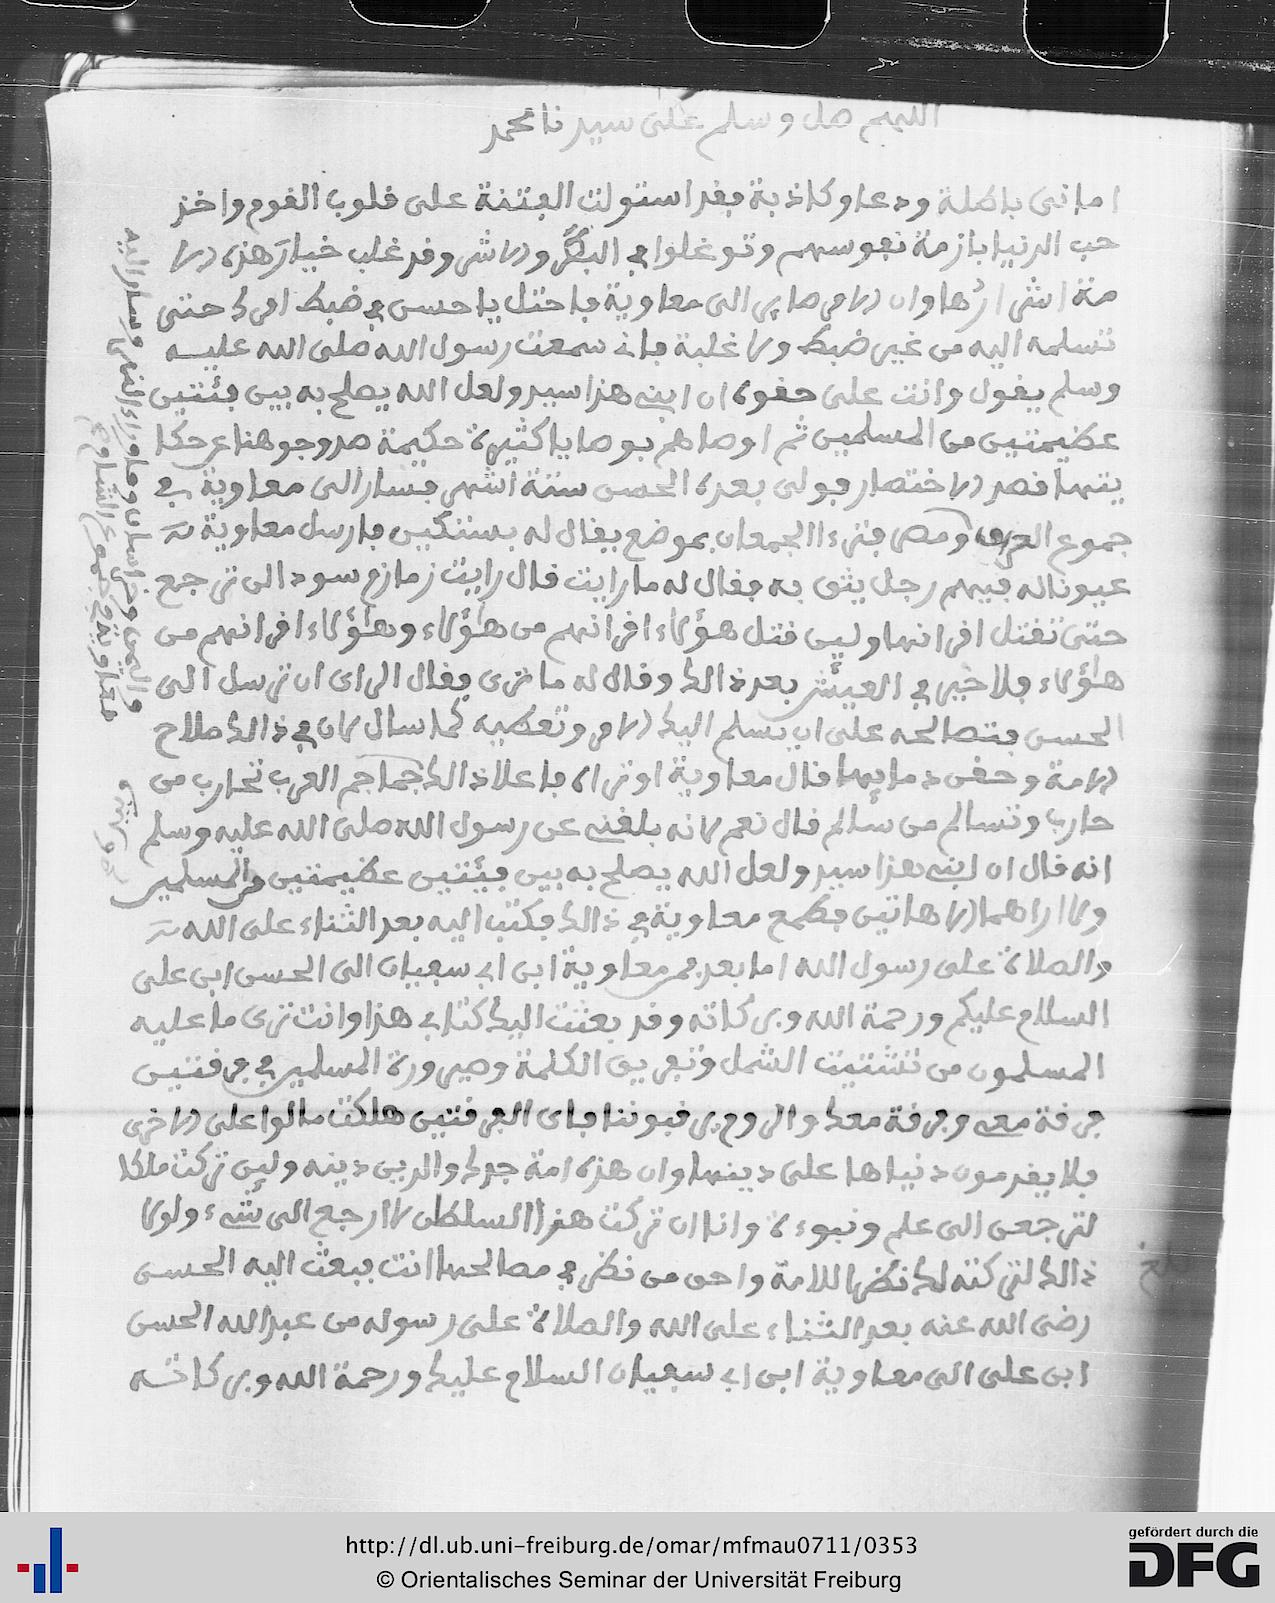 اللهم صل وسلم على سيدنا محمد
اماني باطلة ودعاو كاذبة فقد استولت الفتنة على قلوب القوم واخذ
حب الدنيا بازمة نفوسهم وتوغلوا في البطر والاشر وقد غلب خيار هذه الا
مة اشرارها وان الامر صاير الى معاوية فاحتل يا حسن في ضبط امرك حتى
تسلمه اليه من غير ضبط ولا غلبة فاني سمعت رسول الله صلى الله عليه
وسلم يقول وانت على حقوه ان ابني هذا سيد ولعل الله يصلح به بين فئتين
عظيمتين من المسلمين ثم اوصاهم بوصايا كثيرة حكيمة صدوجوهنا عن حكا
يتها قصد الاختصار فولي بعده الحسن ستة اشهر فسار الى معاوية في
جموع العراق ومصر فتراءا الجمعان بموضع يقال له بسنكين فارسل معاوية
عيونا له فيهم رجل يثق به فقال له ما رايت قال رايت زمازم سود الى ترجع
حتى تقتل اقرانها وليس قتل هؤلاء اقرانهم من هاؤلاء وهاؤلاء اقرانهم من
هاؤلاء فلا خير في العيش بعد ذالك وقال له ما ترى فقال الراى ان ترسل الى
الحسن فتصالحه على ان يسلم اليك الامر وتعطيه كما سال لان في ذالك صلاح
الامة وحقن دمايها قال معاوية او تراه فاعلا ذالك جماجم العرب تحارب من
حارب وتسالم من سالم قال نعم لانه بلغني عن رسول الله صلى الله عليه وسلم
انه قال ان ابني هذا سيد ولعل الله يصلح به بين فيئتين عظيمتين من المسلمين
ولا اراهما الا هاتين فطمع معاوية في ذالك فكتب اليه بعد الثناء على الله
والصلاة على رسول الله اما بعد فمن معاوية ابن ابي سفيان الى الحسن ابن علي
السلام عليكم ورحمة الله وبركاته وقد بعثت اليك كتابي هذا وانت ترى ما عليه
المسلمون من تشتيت الشمل وتفريق الكلمة وصيرورة المسلمين في فرقتين
فرقة معي وفرقة معك والروم يرقبوننا فاى الفرقتين هلكت مالوا على الاخرى
فلا يقدمون دنياها على دينها وان هذه امة جدك والدين دينه وليس تركت ملكا
لترجعن الى علم ونبوءة وانا ان تركت هذا السلطان لا ارجع الى شيء ولولا
ذالك لتركته لك نظرا للامة واحق من نظر في مصالحها انت فبعث اليه الحسن
رضى الله عنه بعد الثناء على الله والصلاة على رسوله من عبد الله الحسن
ابن علي الى معاوية ابن ابي سفيان السلام عليك ورحمة الله وبركاته
واليمن وخراسان وما وراء النهر وسار اليه
معاوية في جموع الشام
بلغ
http://dl.ub.uni-freiburg.de/omar/mfmau0711/0353
© Orientalisches Seminar der Universität Freiburg
gefördert durch die
DFG